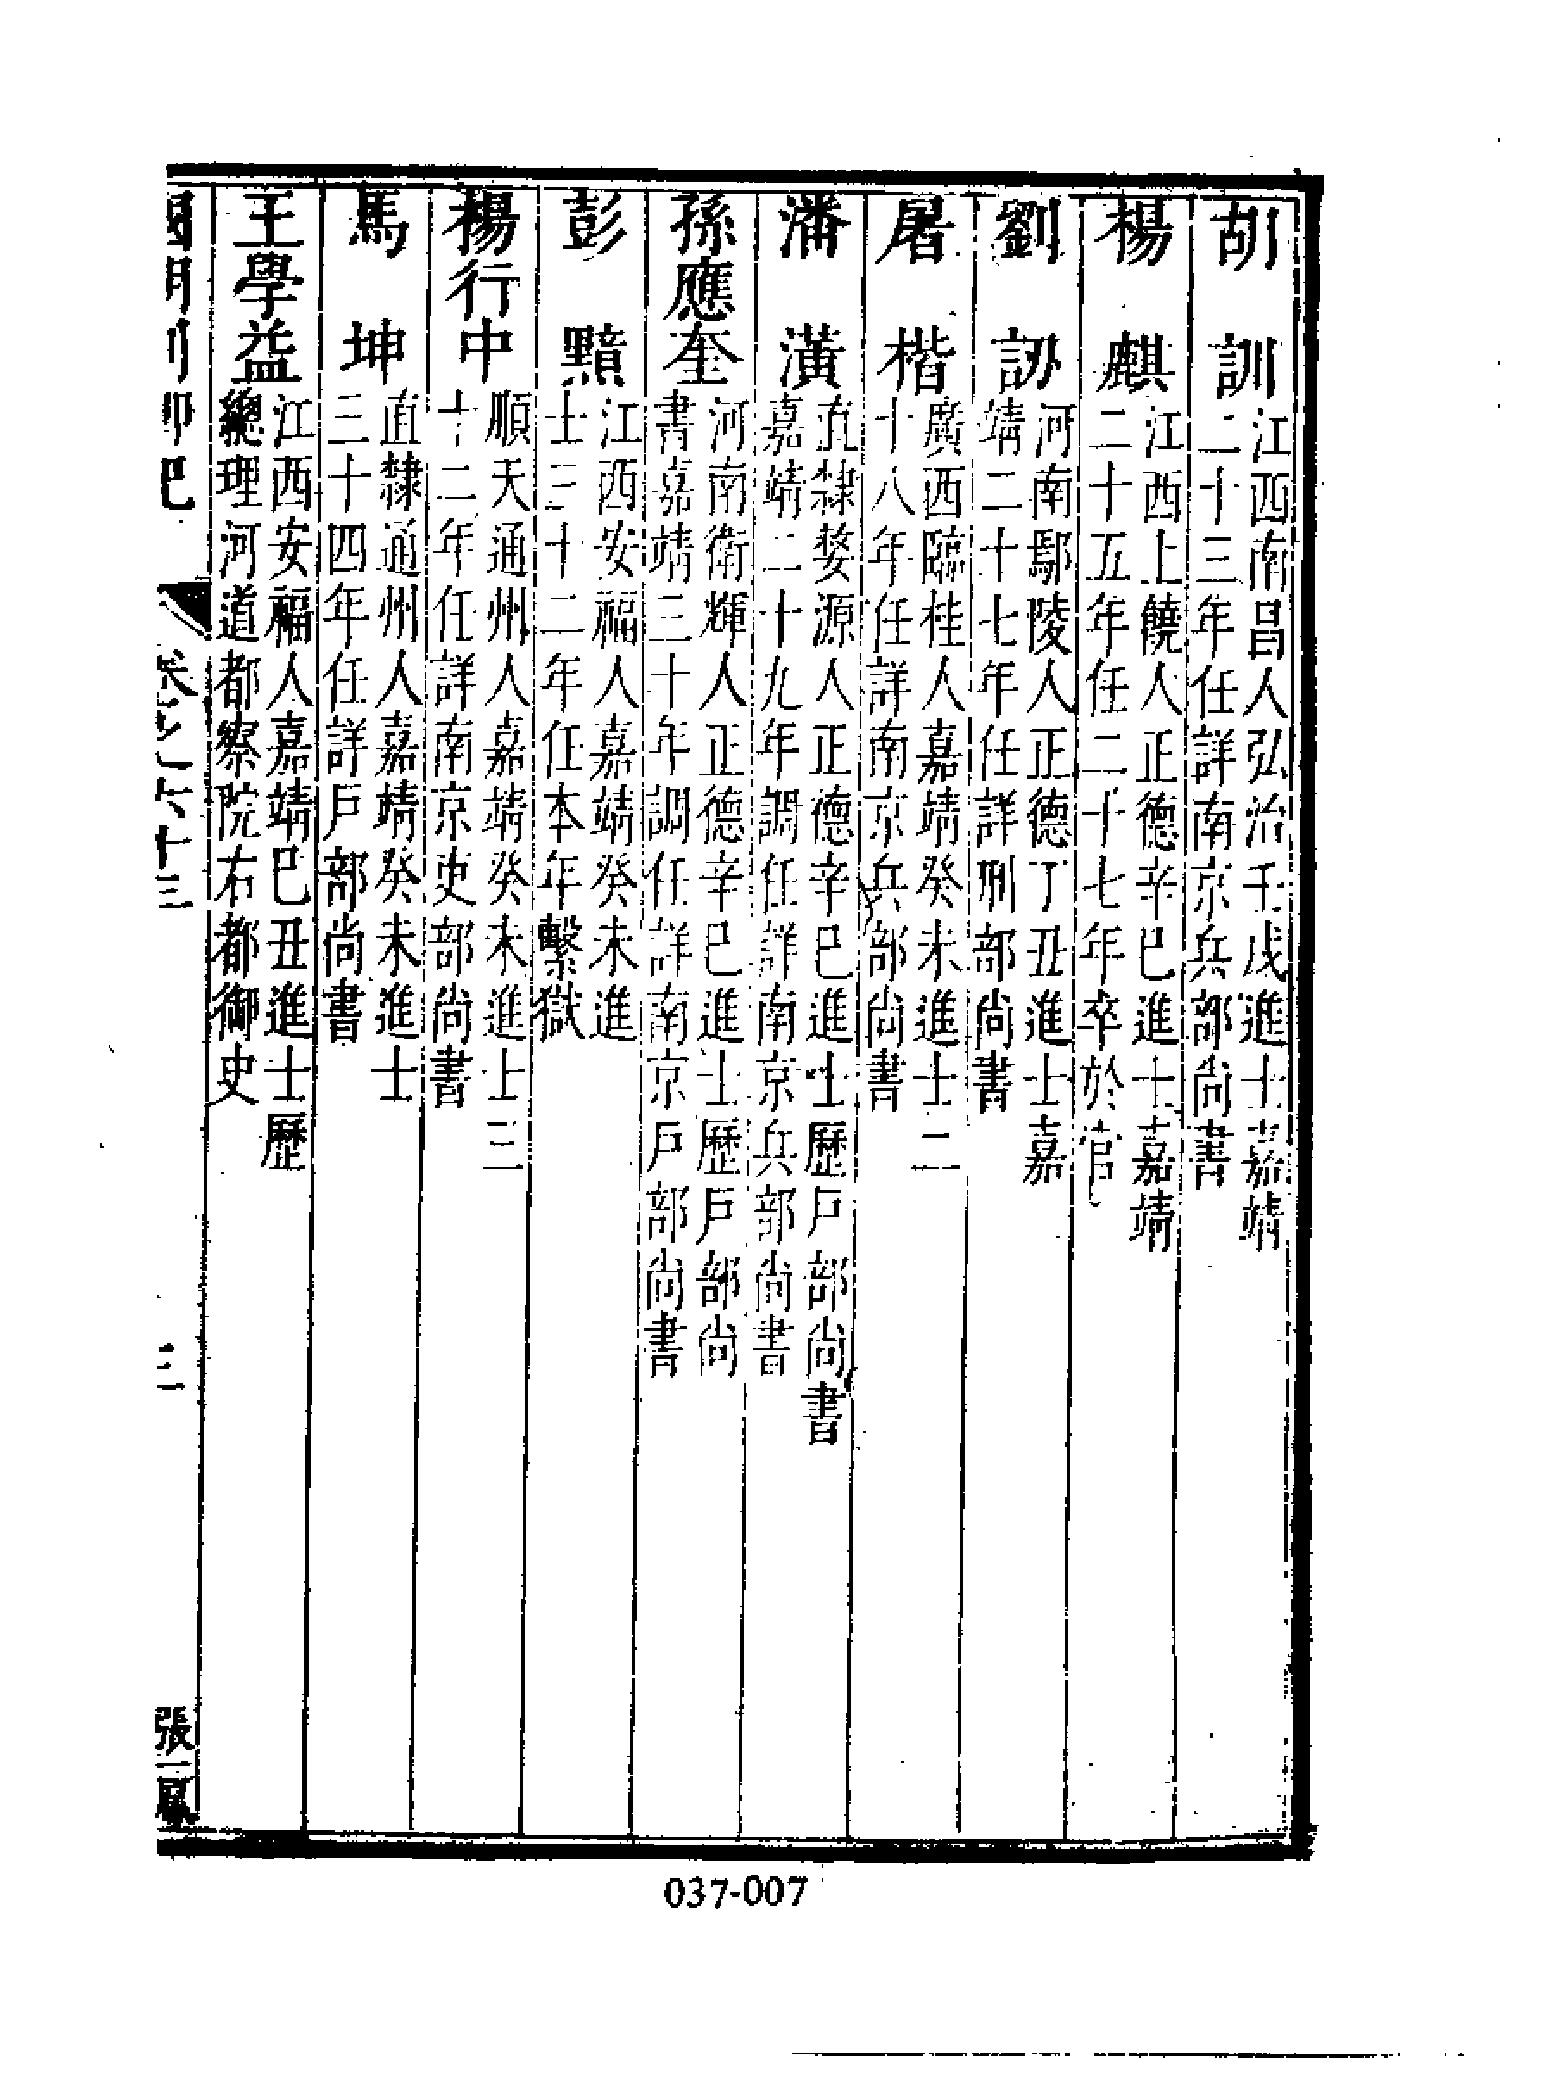 胡　訓
江西南昌人弘治壬戌進士嘉靖
二十三年任詳南京兵部尚書
楊　麒
江西上饒人正德辛巳進士嘉靖
二十五年任二十七年卒於官
劉　訒
河南鄢陵人正德丁丑進士嘉
靖二十七年任詳刑部尚書
屠　楷
廣西臨桂人嘉靖癸未進士二
十八年任詳南京兵部尚書
潘　潢
直隸婺源人正德辛巳進士歷戶部尚書
嘉靖二十九年調任詳南京兵部尚書
孫應奎
河南衛輝人正德辛巳進士歷戶部尚
書嘉靖三十年調任詳南京戶部尚書
彭　黯
江西安福人嘉靖癸未進
士三十二年任本年繫獄
楊行中
順天通州人嘉靖癸未進士三
十二年任詳南京吏部尚書
馬　坤
直隸通州人嘉靖癸未進士
三十四年任詳戶部尚書
王學益
江西安福人嘉靖巳丑進士歷
總理河道都察院右都御史
國朝列卿紀　卷之六十三　三　張一鳳
037-007